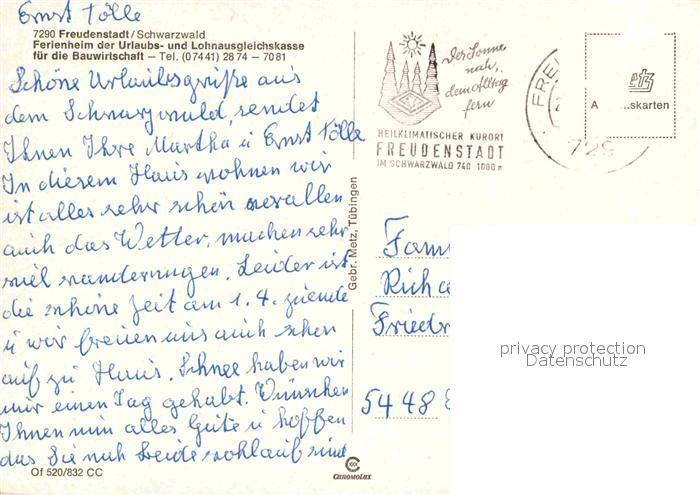 Ernst Tölle
7290 Freudenstadt / Schwarzwald
Ferienheim der Urlaubs- und Lohnausgleichskasse
für die Bauwirtschaft — Tel. (07441) 2874 — 7081
Schöne Urlaubsgrüße aus
dem Schwarzwald, sendet
Ihnen Ihre Martha u Ernst Tölle
In diesem Haus wohnen wir
ist alles sehr schön vor allen
auch das Wetter, machen sehr
viel wanderungen. Leider ist
die schöne Zeit am 1. 4. zuende
u wir freuen uns auch schon
auf zu Haus. Schnee haben wir
nur einen Tag gehabt. Wünschen
Ihnen nun alles Gute u hoffen
das Sie noch beide wohlauf sind
Of 520/832 CC
Gebr. Metz, Tübingen
CHROMOLUX
Der Sonne
nah,
dem Alltag
fern
HEILKLIMATISCHER KURORT
FREUDENSTADT
IM SCHWARZWALD 740 1000 m
FRE
729
etz
A skarten
Fam
Rich
Friedr
5448
privacy protection
Datenschutz